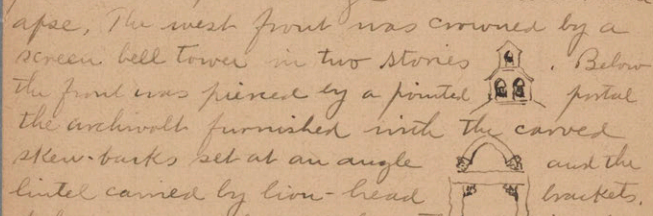 apse. The west front was crowned by a
screen bell tower in two stories . Below
the front was pierced by a pointed portal
the archivolt furnished with the carved
skew-backs set at an angle and the
lintel carried by lion-head brackets.